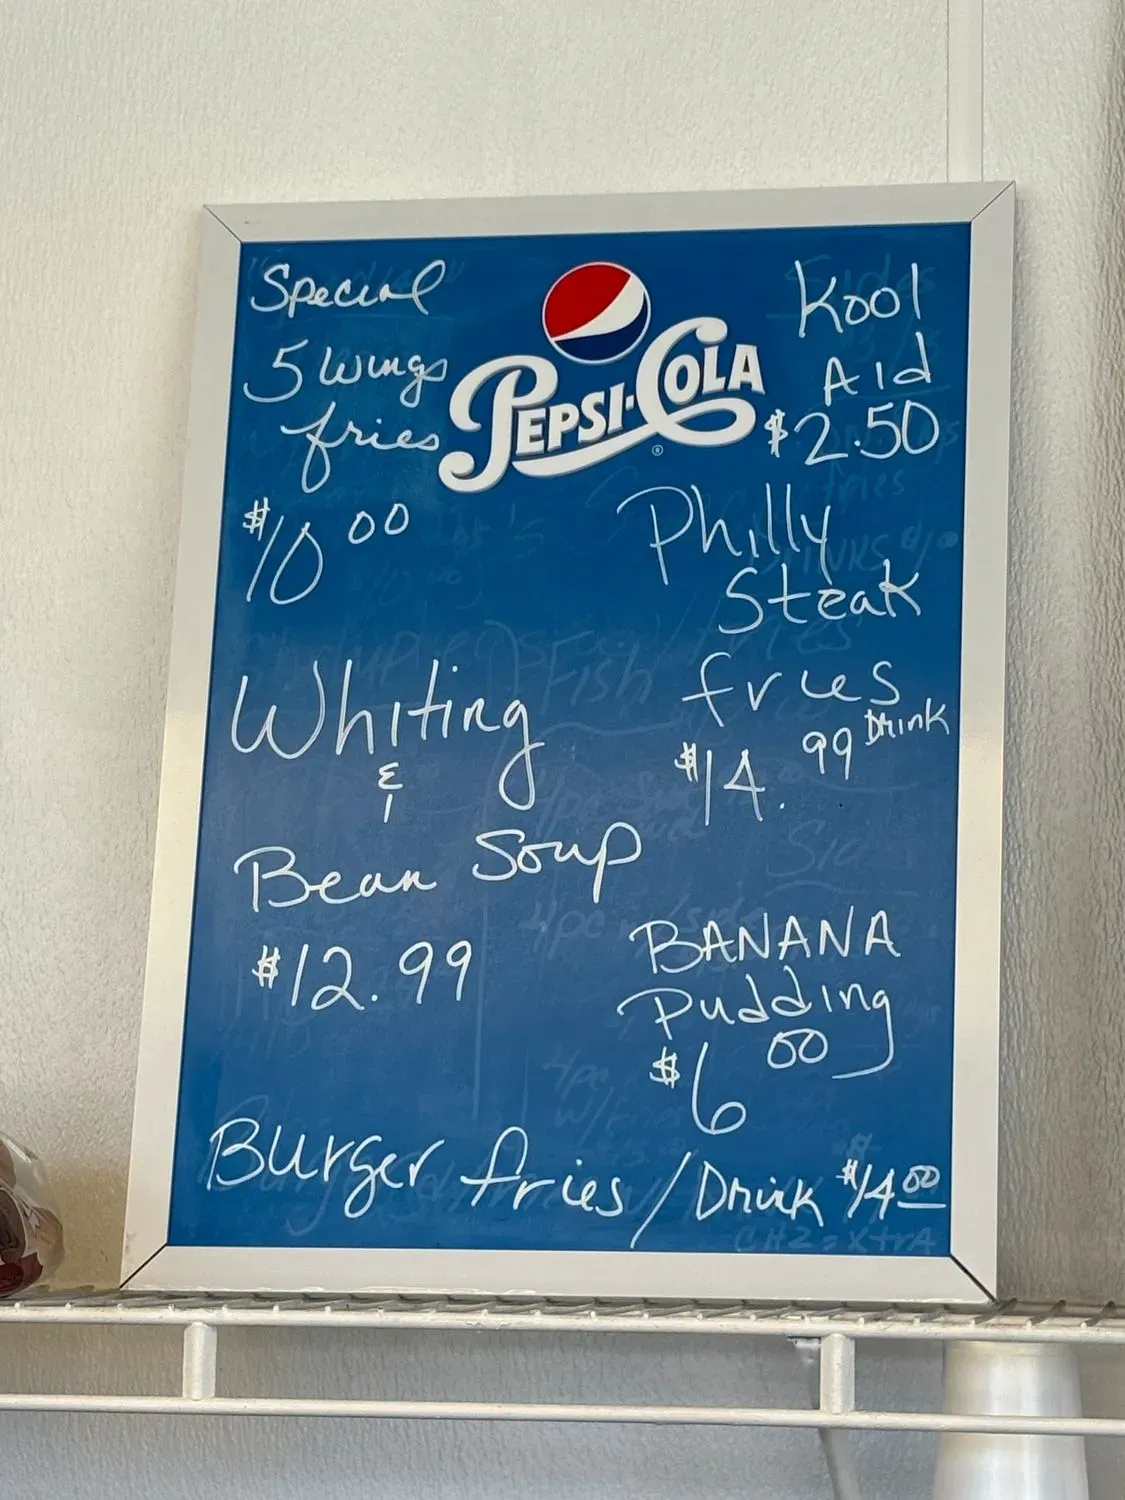 Special
5 wings
fries
$10 00
PEPSI-COLA
®
Kool
Aid
$2.50
Philly
Steak
fries
$14.99 Drink
Whiting
&
Bean Soup
$12.99
BANANA
Pudding
$6 00
Burger fries / Drink $14 00
CHZ = XtrA